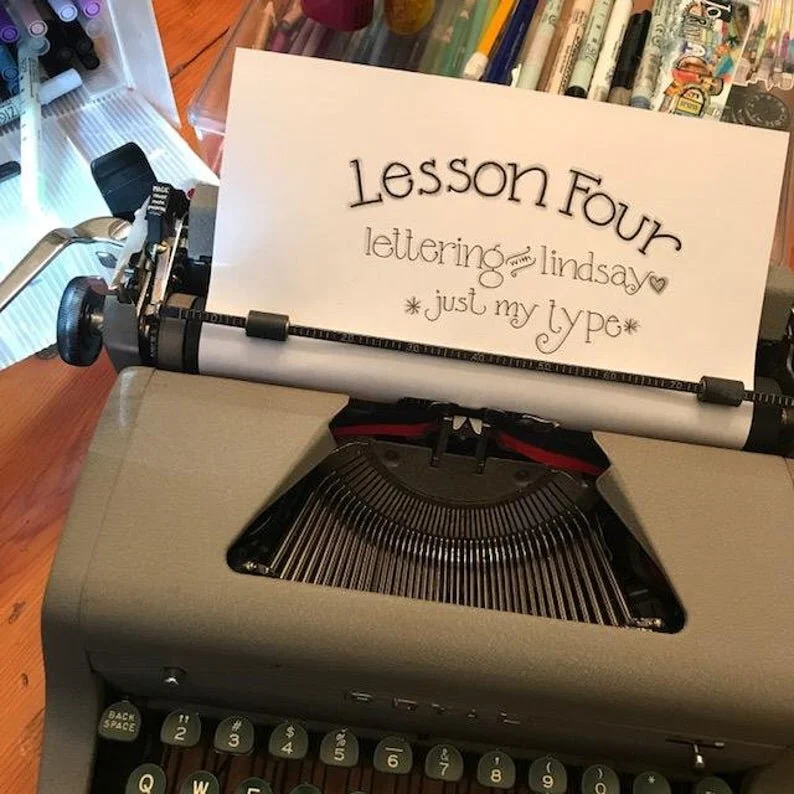 Lesson Four
lettering with lindsay
*just my type*
MAGIC
0 20 30 40 50 60 70
ROYAL
BACK SPACE
" 2 # 3 $ 4 % 5 _ 6 & 7 ' 8 ( 9 ) 0 *
Q W E